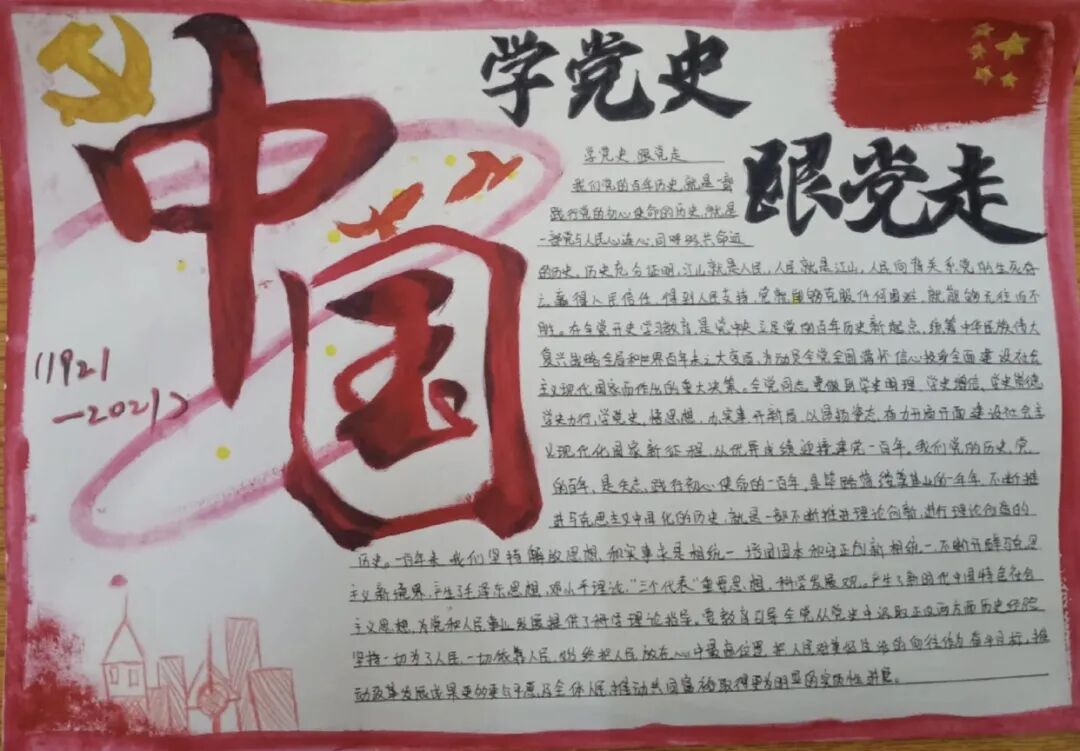 中国
学党史
跟党走
(1921
—2021)
学党史 跟党走
我们党的百年历史,就是一部
践行党的初心使命的历史,就是
一部党与人民心连心,同呼吸共命运
的历史。历史充分证明,江山就是人民,人民就是江山,人民向背关系党的生死存
亡赢得人民信任,得到人民支持,党就能够克服任何困难,就能够无往而不
胜。在全党开史学习教育,是党中央立足党的百年历史新起点,统筹中华民族伟大
复兴战略全局和世界百年未之大变局,为动员全党全国满怀信心投身全面建设社会
主义现代国家而作出的重大决策。全党同志要做到学史明理、学史增信、学史崇德
学史力行,学党史、悟思想、办实事开新局,以昂扬姿态,奋力开启开面建设社会主
义现代化国家新征程,从优异成绩迎接建党一百年。我们党的历史,党
的百年,是矢志践行初心使命的一百年,是筚路蓝缕奠基业的一年年,不断推
进马克思主义中国化的历史,就是一部不断推进理论创新,进行理论创造的
历史。一百年来,我们坚持解放思想和实事求是相统一、培固固本和守正创新相统一,不断开辟马克思
主义新境界,产生了毛泽东思想,邓小平理论,“三个代表”重要思想,科学发展观。产生了新时代中国特色社会
主义思想,为党和人民事业发展提供了科学理论指导。党教育引导全党从党史中汲取正反两方面历史经验
坚持一切为了人民、一切依靠人民,始终把人民放在心中最高位置,把人民对美好生活的向往作为奋斗目标,推
动改革发展成果更多更与平惠及全体人民,推动共同富裕取得更为明显的实质性进展。